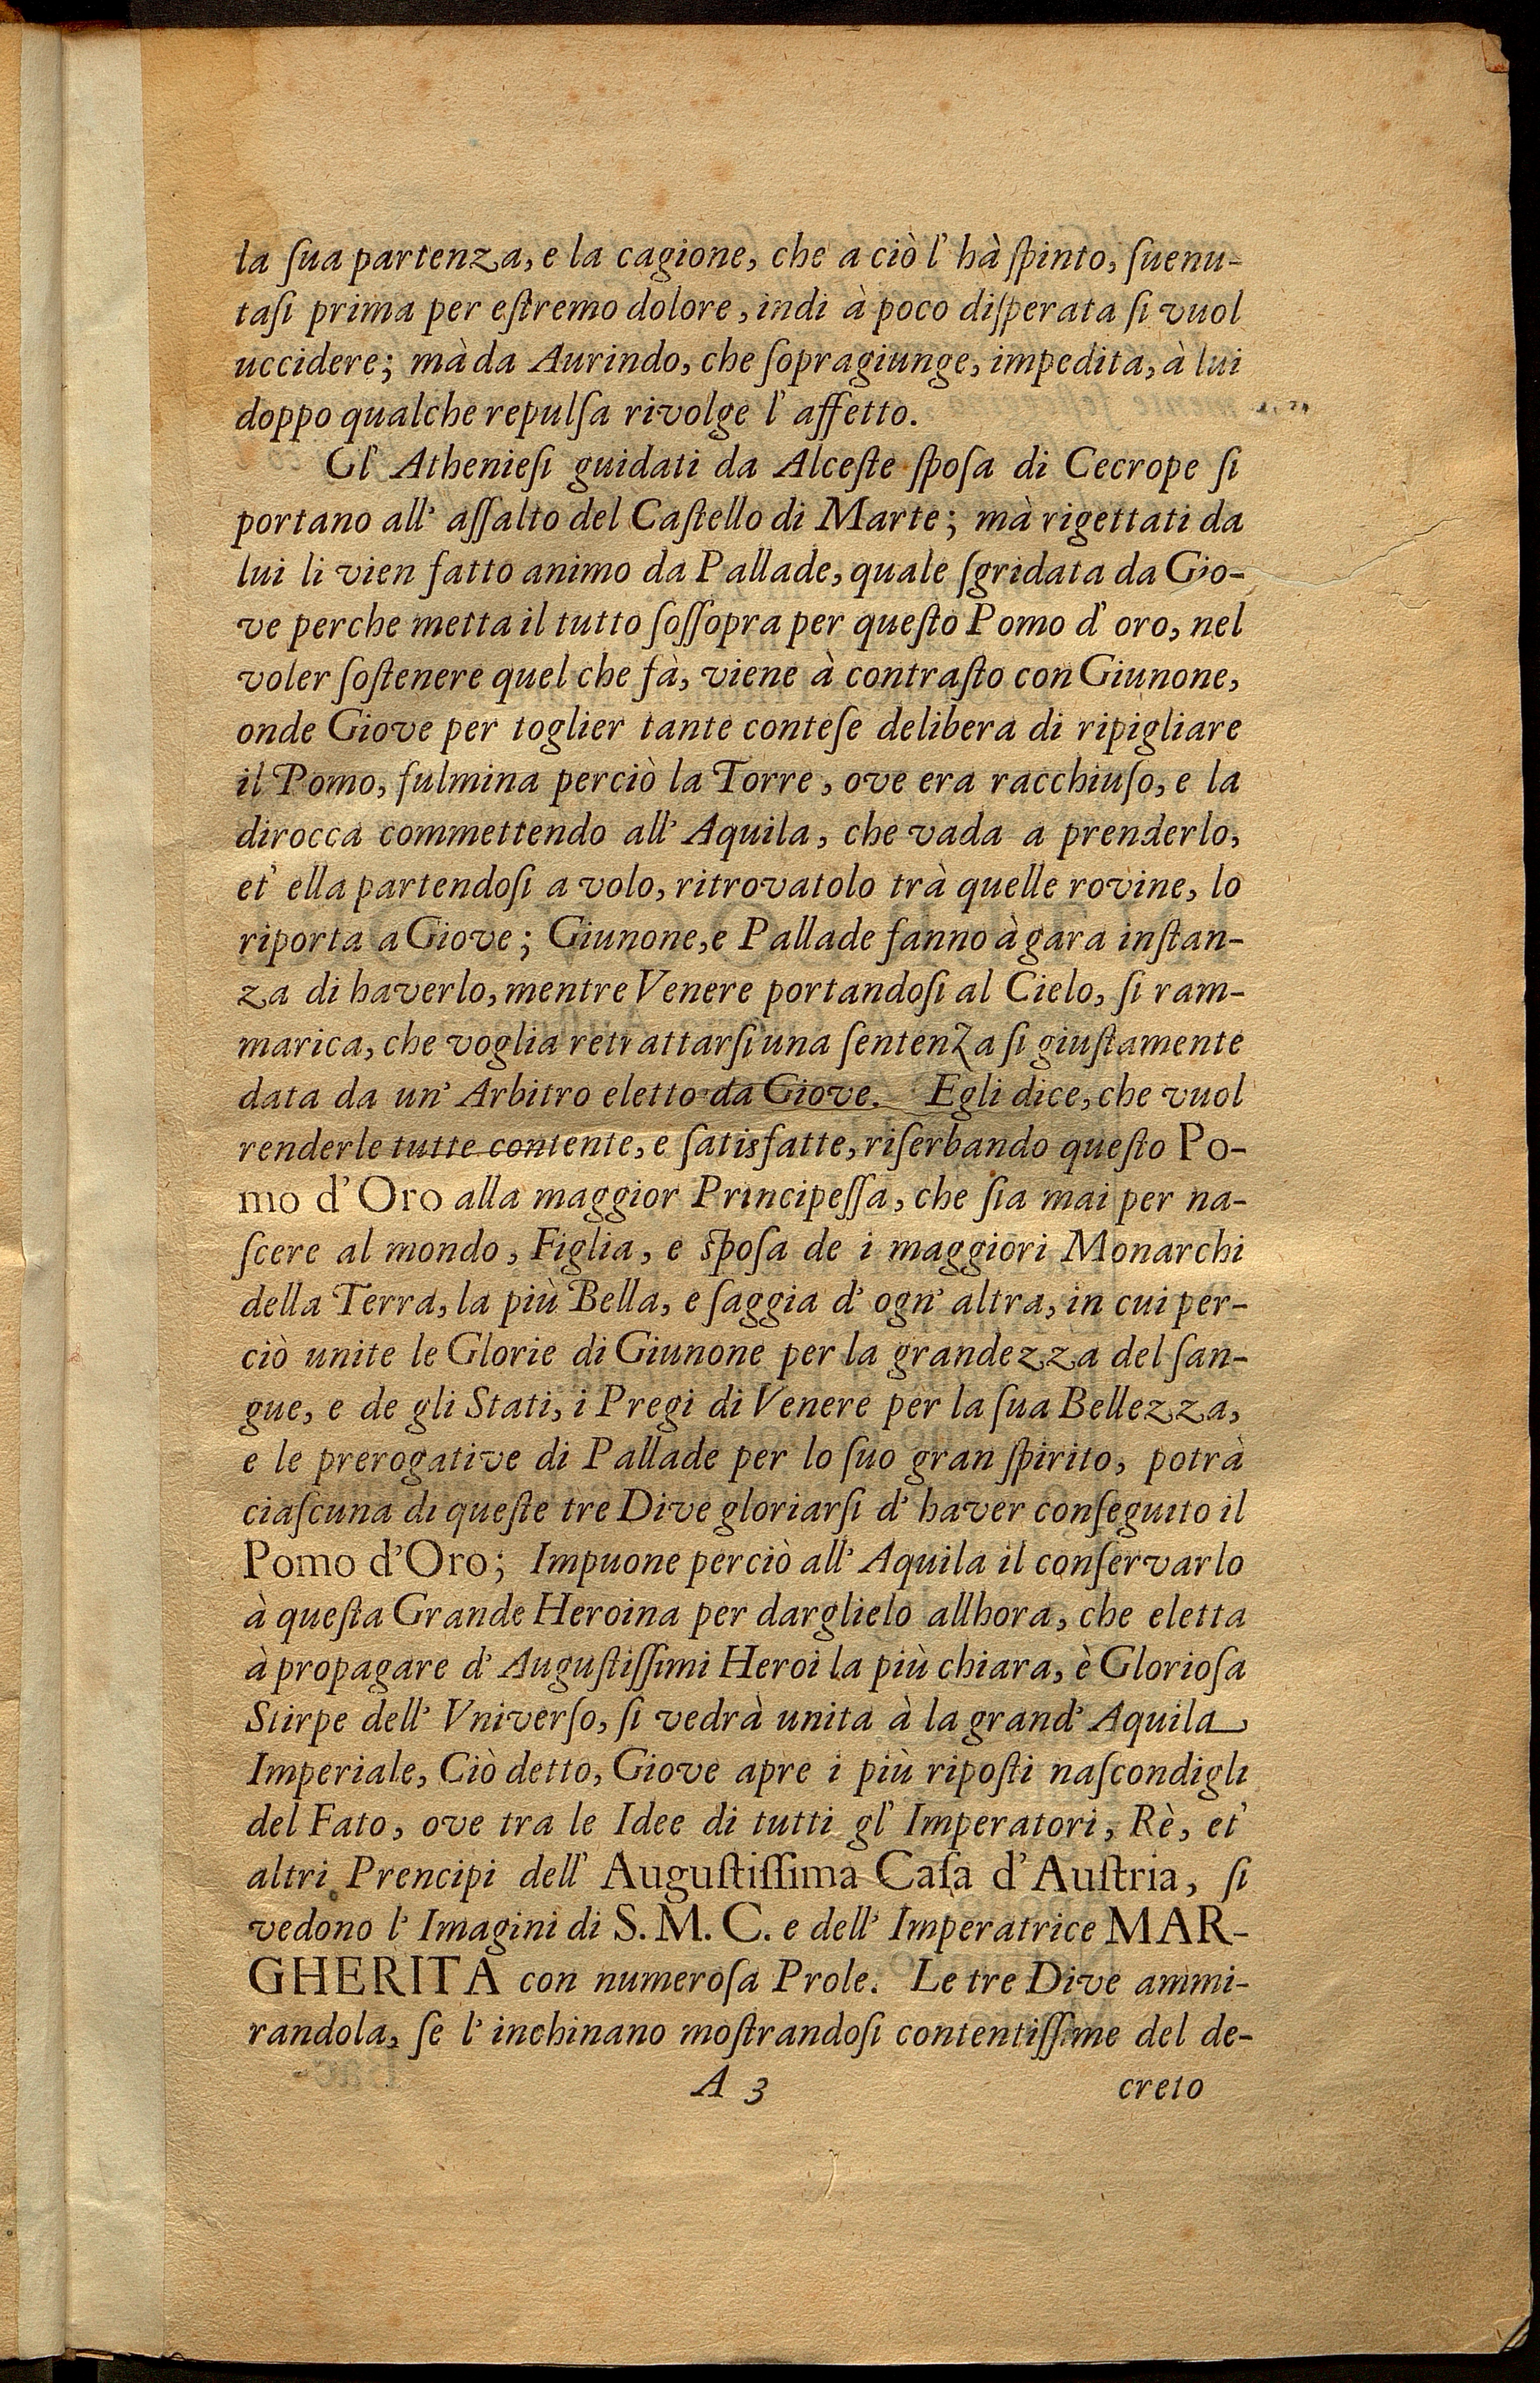 la ſua partenza, e la cagione, che a ciò l' hà ſpinto, ſuenu-
taſi prima per eſtremo dolore, indi à poco diſperata ſi vuol
uccidere; mà da Aurindo, che ſopragiunge, impedita, à lui
doppo qualche repulſa rivolge l' affetto.
Gl' Athenieſi guidati da Alceſte ſpoſa di Cecrope ſi
portano all' aſſalto del Caſtello di Marte; mà rigettati da
lui li vien fatto animo da Pallade, quale ſgridata da Gio-
ve perche metta il tutto ſoſſopra per queſto Pomo d' oro, nel
voler ſoſtenere quel che fà, viene à contraſto con Giunone,
onde Giove per toglier tante conteſe delibera di ripigliare
il Pomo, fulmina perciò la Torre, ove era racchiuſo, e la
dirocca commettendo all' Aquila, che vada a prenderlo,
et' ella partendoſi a volo, ritrovatolo trà quelle rovine, lo
riporta a Giove; Giunone, e Pallade fanno à gara inſtan-
za di haverlo, mentre Venere portandoſi al Cielo, ſi ram-
marica, che voglia retrattarſi una ſentenza ſi giuſtamente
data da un' Arbitro eletto da Giove. Egli dice, che vuol
renderle tutte contente, e ſatisfatte, riſerbando queſto Po-
mo d' Oro alla maggior Principeſſa, che ſia mai per na-
ſcere al mondo, Figlia, e ſpoſa de i maggiori Monarchi
della Terra, la più Bella, e ſaggia d' ogn' altra, in cui per-
ciò unite le Glorie di Giunone per la grandezza del ſan-
gue, e de gli Stati, i Pregi di Venere per la ſua Bellezza,
e le prerogative di Pallade per lo ſuo gran ſpirito, potrà
ciaſcuna di queſte tre Dive gloriarſi d' haver conſeguito il
Pomo d'Oro; Impuone perciò all' Aquila il conſervarlo
à queſta Grande Heroina per darglielo allhora, che eletta
à propagare d' Auguſtiſſimi Heroi la più chiara, è Glorioſa
Stirpe dell' Vniverſo, ſi vedrà unita à la grand' Aquila
Imperiale, Ciò detto, Giove apre i più ripoſti naſcondigli
del Fato, ove tra le Idee di tutti gl' Imperatori, Rè, et'
altri Prencipi dell' Auguſtiſſima Caſa d' Auſtria, ſi
vedono l' Imagini di S. M. C. e dell' Imperatrice MAR-
GHERITA con numeroſa Prole. Le tre Dive ammi-
randola, ſe l' inchinano moſtrandoſi contentiſſime del de-
A 3 creto